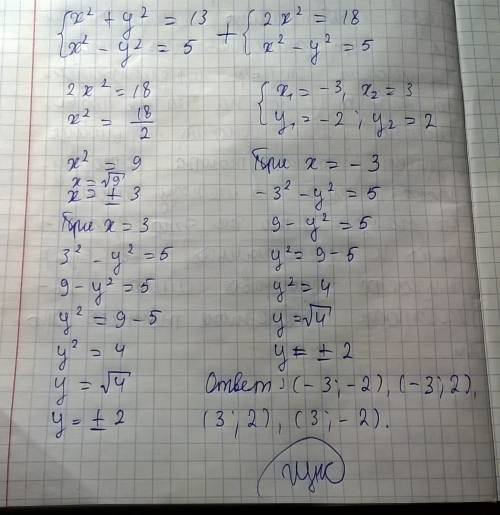 {x² + y² = 13 + {2x² = 18
x² - y² = 5 x² - y² = 5
2x² = 18
x² = 18/2
x² = 9
x = √9
x = ± 3
При x = 3
3² - y² = 5
9 - y² = 5
y² = 9 - 5
y² = 4
y = √4
y = ± 2
{x₁ = -3, x₂ = 3
y₁ = -2; y₂ = 2
При x = -3
-3² - y² = 5
9 - y² = 5
y² = 9 - 5
y² = 4
y = √4
y = ± 2
Ответ: (-3; -2), (-3; 2),
(3; 2), (3; -2).